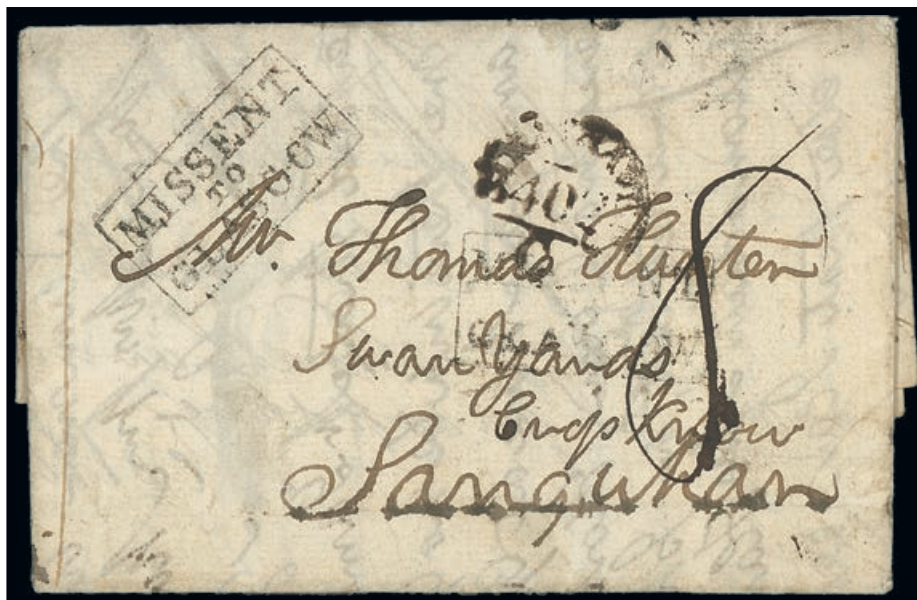 MISSENT
TO
GLASGOW
340
Mr. Thomas Hunter
Swan Yards
Sanquhar
8